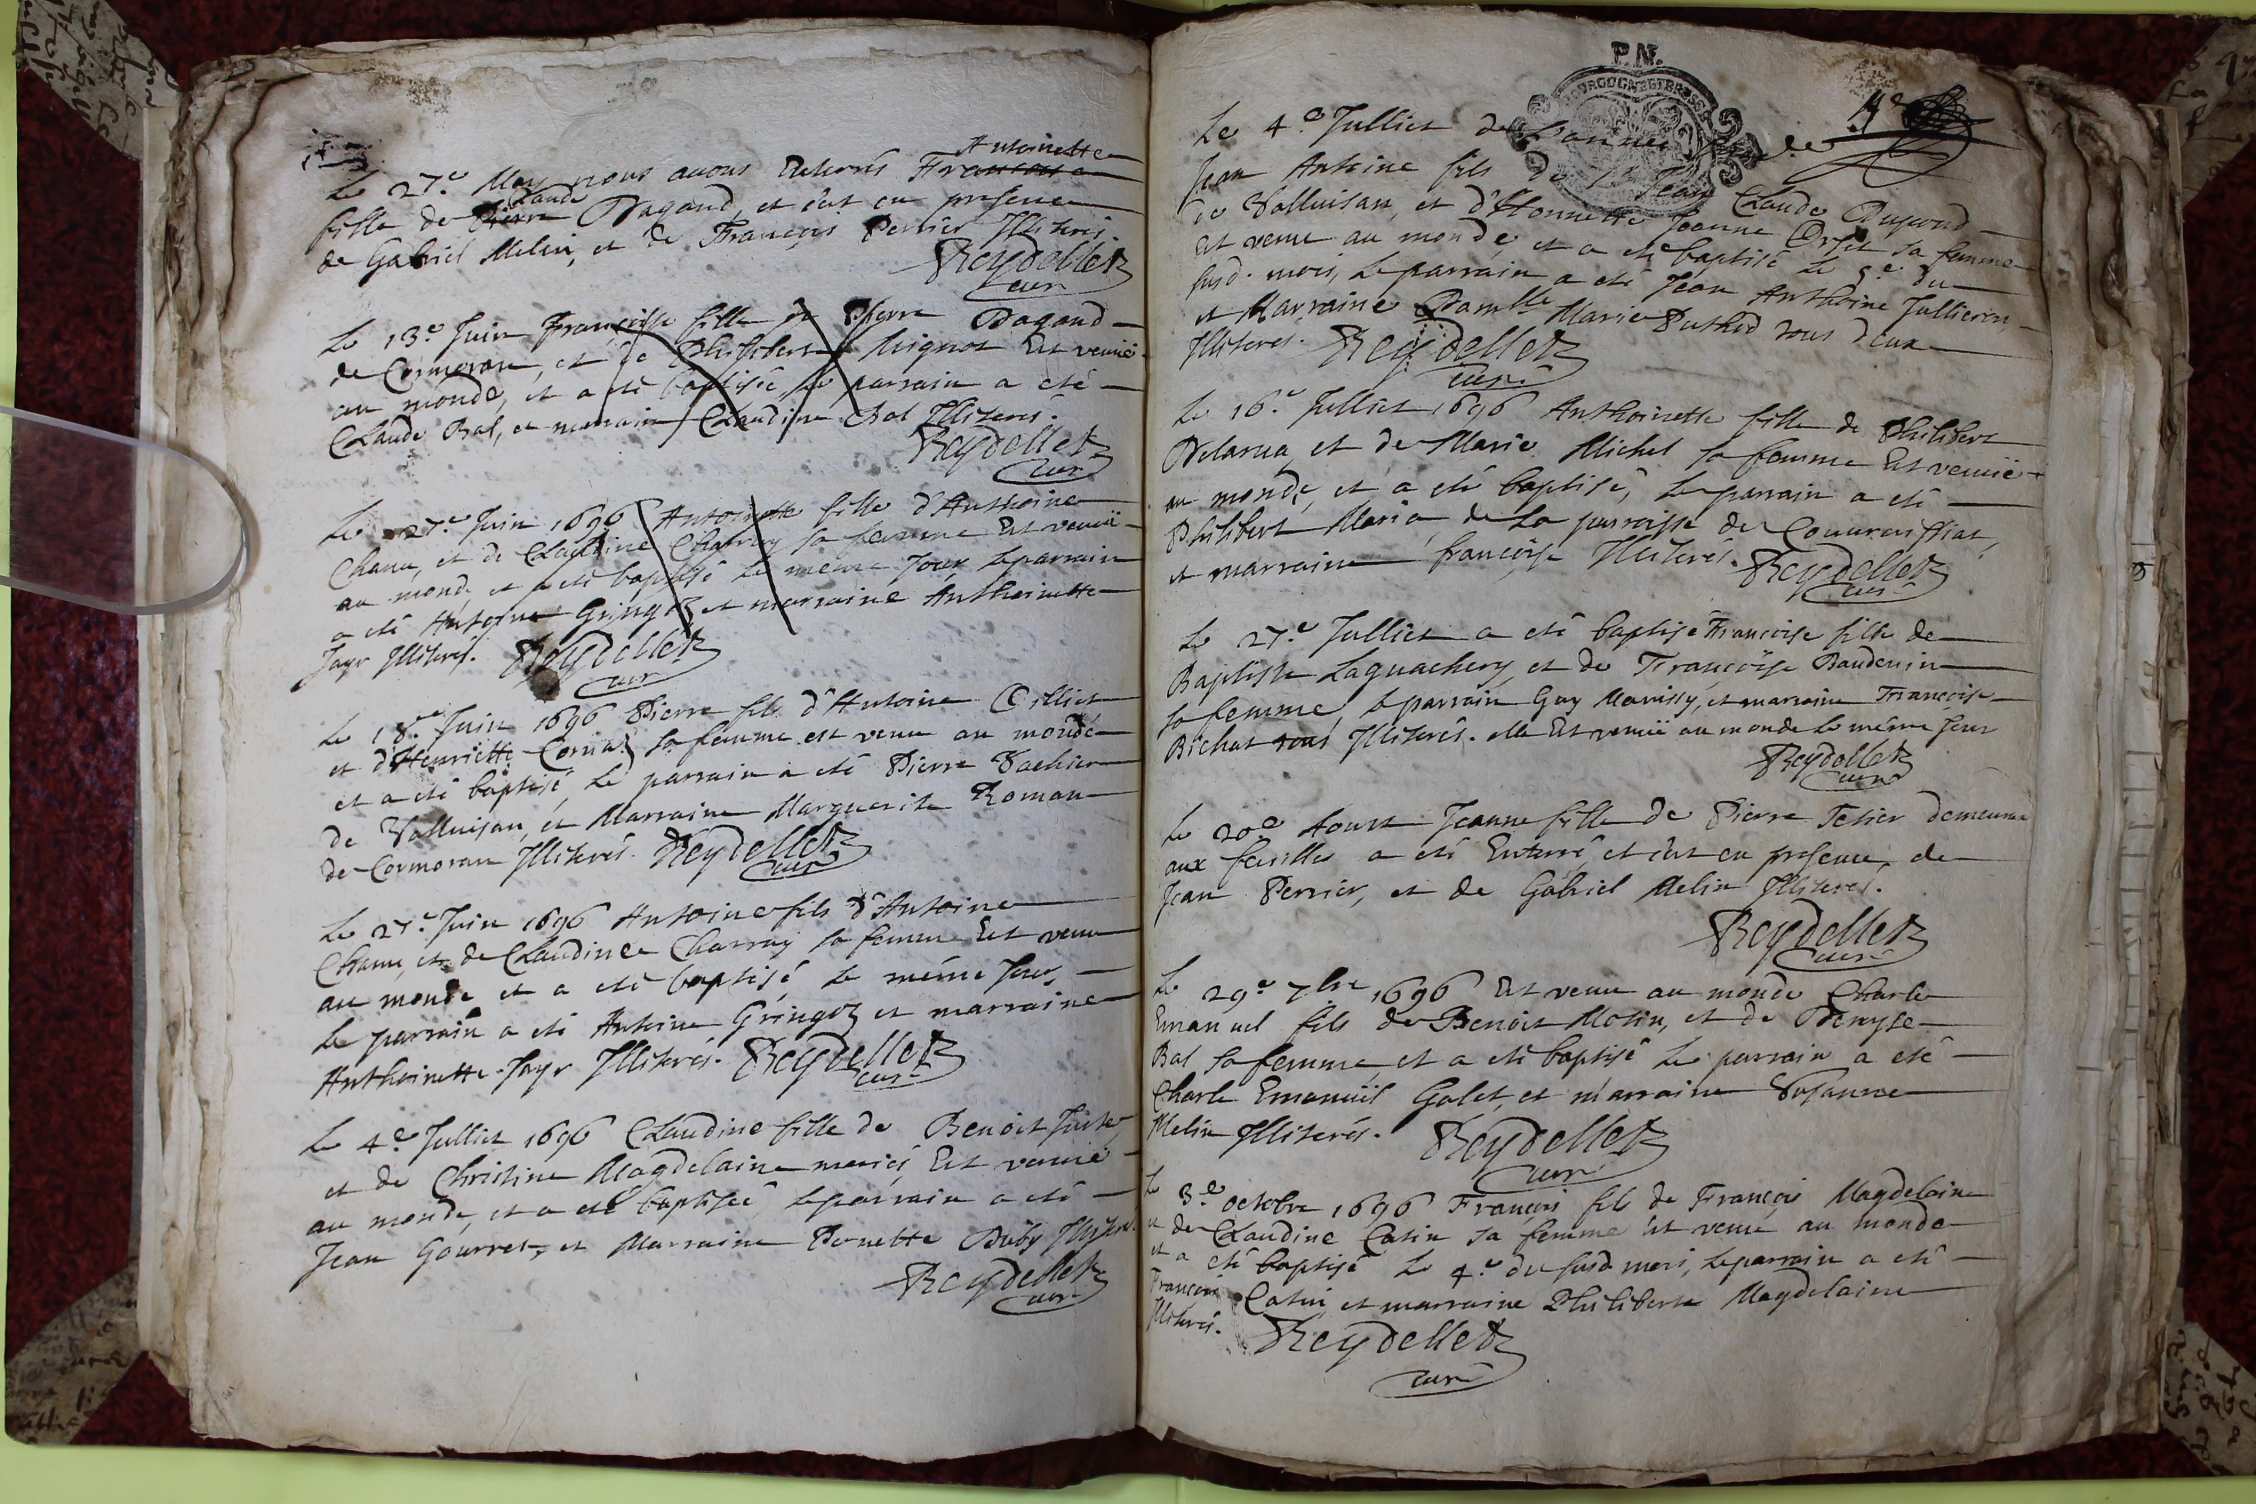 Antoinette
Le 27.e May nous avons Enterré Francoise
Claude
fille de Pierre Dagand, et c'est en presence
de Gabriel Melin, et de François Perrier Illiterés.
Reydellet
curé
Le 13.e Juin Françoise fille de Pierre Dagand
de Cormoran, et de Philiberte Mignot Est venuë
au monde, et a eté baptisée, Le parrain a eté
Claude Bal, et marraine Claudine Bal Illiterés.
Reydellet
curé
Le 27.e Juin 1696 Antoinette fille d'Anthoine
Chanu, et de Claudine Charray sa femme Est venuë
au monde et a eté baptisé Le même Jour, Le parrain
a eté Antoine Gringoz et marraine Anthoinette
Jayr Illiterés. Reydellet
curé
Le 18.e Juin 1696 Pierre fils d'Antoine Cilliet
et d'Henriette Cornaz sa femme est venu au monde
et a eté baptisé, Le parrain a eté Pierre Vachier
de Valluisan, et Marraine Marguerite Roman
de Cormoran Illiterés. Reydellet
curé
Le 27.e Juin 1696 Antoine fils d'Antoine
Chanu, et de Claudine Charray sa femme Est venu
au monde et a eté baptisé Le même Jour,
Le parrain a eté Antoine Gringoz et marraine
Anthoinette Jayr Illiterés. Reydellet
curé
Le 4.e Julliet 1696 Claudine fille de Benoit Juste
et de Christine Magdelaine mariés, Est venuë
au monde, et a eté baptisée, Le parrain a eté
Jean Gourret, et Marraine Ponette Buby Illiterés.
Reydellet
curé
P. N.
BOURGOGNE ET BRESSE
Le 4.e Julliet de l'année
Jean Antoine fils de Sr Jean Claude Dujoud
de Valluisan, et d'Honnette Jeanne Orset sa femme
est venu au monde, et a eté baptisé Le 5.e du
susd. mois, Le parrain a eté Jean Anthoine Jullieron
et Marraine Damlle Marie Puthod tous deux
Illiterés. Reydellet
curé
Le 16.e Julliet 1696 Anthoinette fille de Philibert
Delarua, et de Marie Michel sa femme Est venuë
au monde, et a eté baptisé, Le parrain a eté
Philibert Maria, de La parroisse de Couvreissiat,
et marraine francoise Illiterés. Reydellet
curé
Le 27.e Julliet a eté baptisé Françoise fille de
Baptiste Laguachery, et de Françoise Baudenin
sa femme, Le parrain Guy Mavissy, et marraine Françoise
Bichat tous Illiterés. elle Est venuë au monde Le même Jour
Reydellet
curé
Le 20.e Aoust Jeanne fille de Pierre Tesier demeurant
aux feuilles a eté Enterré, et c'est en presence, de
Jean Perrier, et de Gabriel Melin Illiterés.
Reydellet
curé
Le 29.e 7bre 1696 Est venu au monde Charle
Emanuel fils de Benoit Motin, et de Denyse
Bal sa femme, et a eté baptisé Le parrain a eté
Charle Emanuël Galet, et marraine Susanne
Melin Illiterés. Reydellet
curé
Le 3.e octobre 1696 François fils de François Magdelaine
et de Claudine Catin sa femme est venu au monde
et a eté baptisé Le 4.e du susd. mois, Le parrain a eté
François Catin, et marraine Philiberte Magdelaine
Illiterés. Reydellet
curé